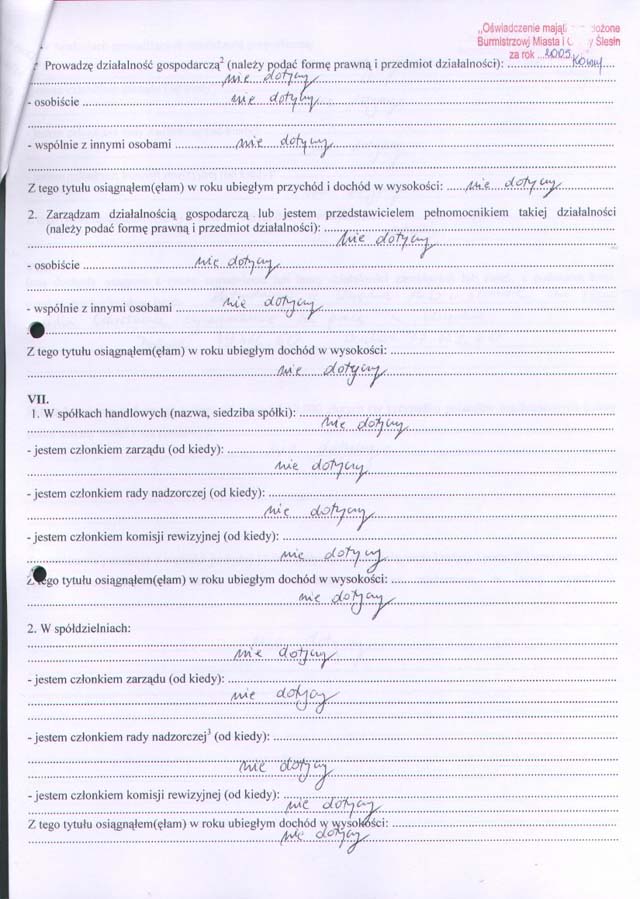 „Oświadczenie mająt złożone
Burmistrzowi Miasta i G y Ślesin
za rok ...2005
Prowadzę działalność gospodarczą² (należy podać formę prawną i przedmiot działalności): ....
nie dotyczy
- osobiście .... nie dotyczy
- wspólnie z innymi osobami .... nie dotyczy
Z tego tytułu osiągnąłem(ęłam) w roku ubiegłym przychód i dochód w wysokości: .... nie dotyczy
2. Zarządzam działalnością gospodarczą lub jestem przedstawicielem pełnomocnikiem takiej działalności
(należy podać formę prawną i przedmiot działalności): ....
nie dotyczy
- osobiście .... nie dotyczy
- wspólnie z innymi osobami .... nie dotyczy
Z tego tytułu osiągnąłem(ęłam) w roku ubiegłym dochód w wysokości: ....
nie dotyczy
VII.
1. W spółkach handlowych (nazwa, siedziba spółki): ....
nie dotyczy
- jestem członkiem zarządu (od kiedy): ....
nie dotyczy
- jestem członkiem rady nadzorczej (od kiedy): ....
nie dotyczy
- jestem członkiem komisji rewizyjnej (od kiedy): ....
nie dotyczy
Z tego tytułu osiągnąłem(ęłam) w roku ubiegłym dochód w wysokości: ....
nie dotyczy
2. W spółdzielniach:
nie dotyczy
- jestem członkiem zarządu (od kiedy): ....
nie dotyczy
- jestem członkiem rady nadzorczej³ (od kiedy): ....
nie dotyczy
- jestem członkiem komisji rewizyjnej (od kiedy): ....
nie dotyczy
Z tego tytułu osiągnąłem(ęłam) w roku ubiegłym dochód w wysokości: ....
nie dotyczy